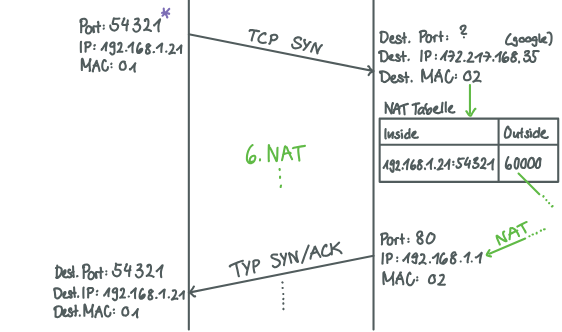 Port: 54321*
IP: 192.168.1.21
MAC: 01
TCP SYN
Dest. Port: ? (google)
Dest. IP: 172.217.168.35
Dest. MAC: 02
NAT Tabelle
Inside Outside
192.168.1.21:54321 60000
6. NAT
NAT
Port: 80
IP: 192.168.1.1
MAC: 02
TYP SYN/ACK
Dest. Port: 54321
Dest. IP: 192.168.1.21
Dest. MAC: 01